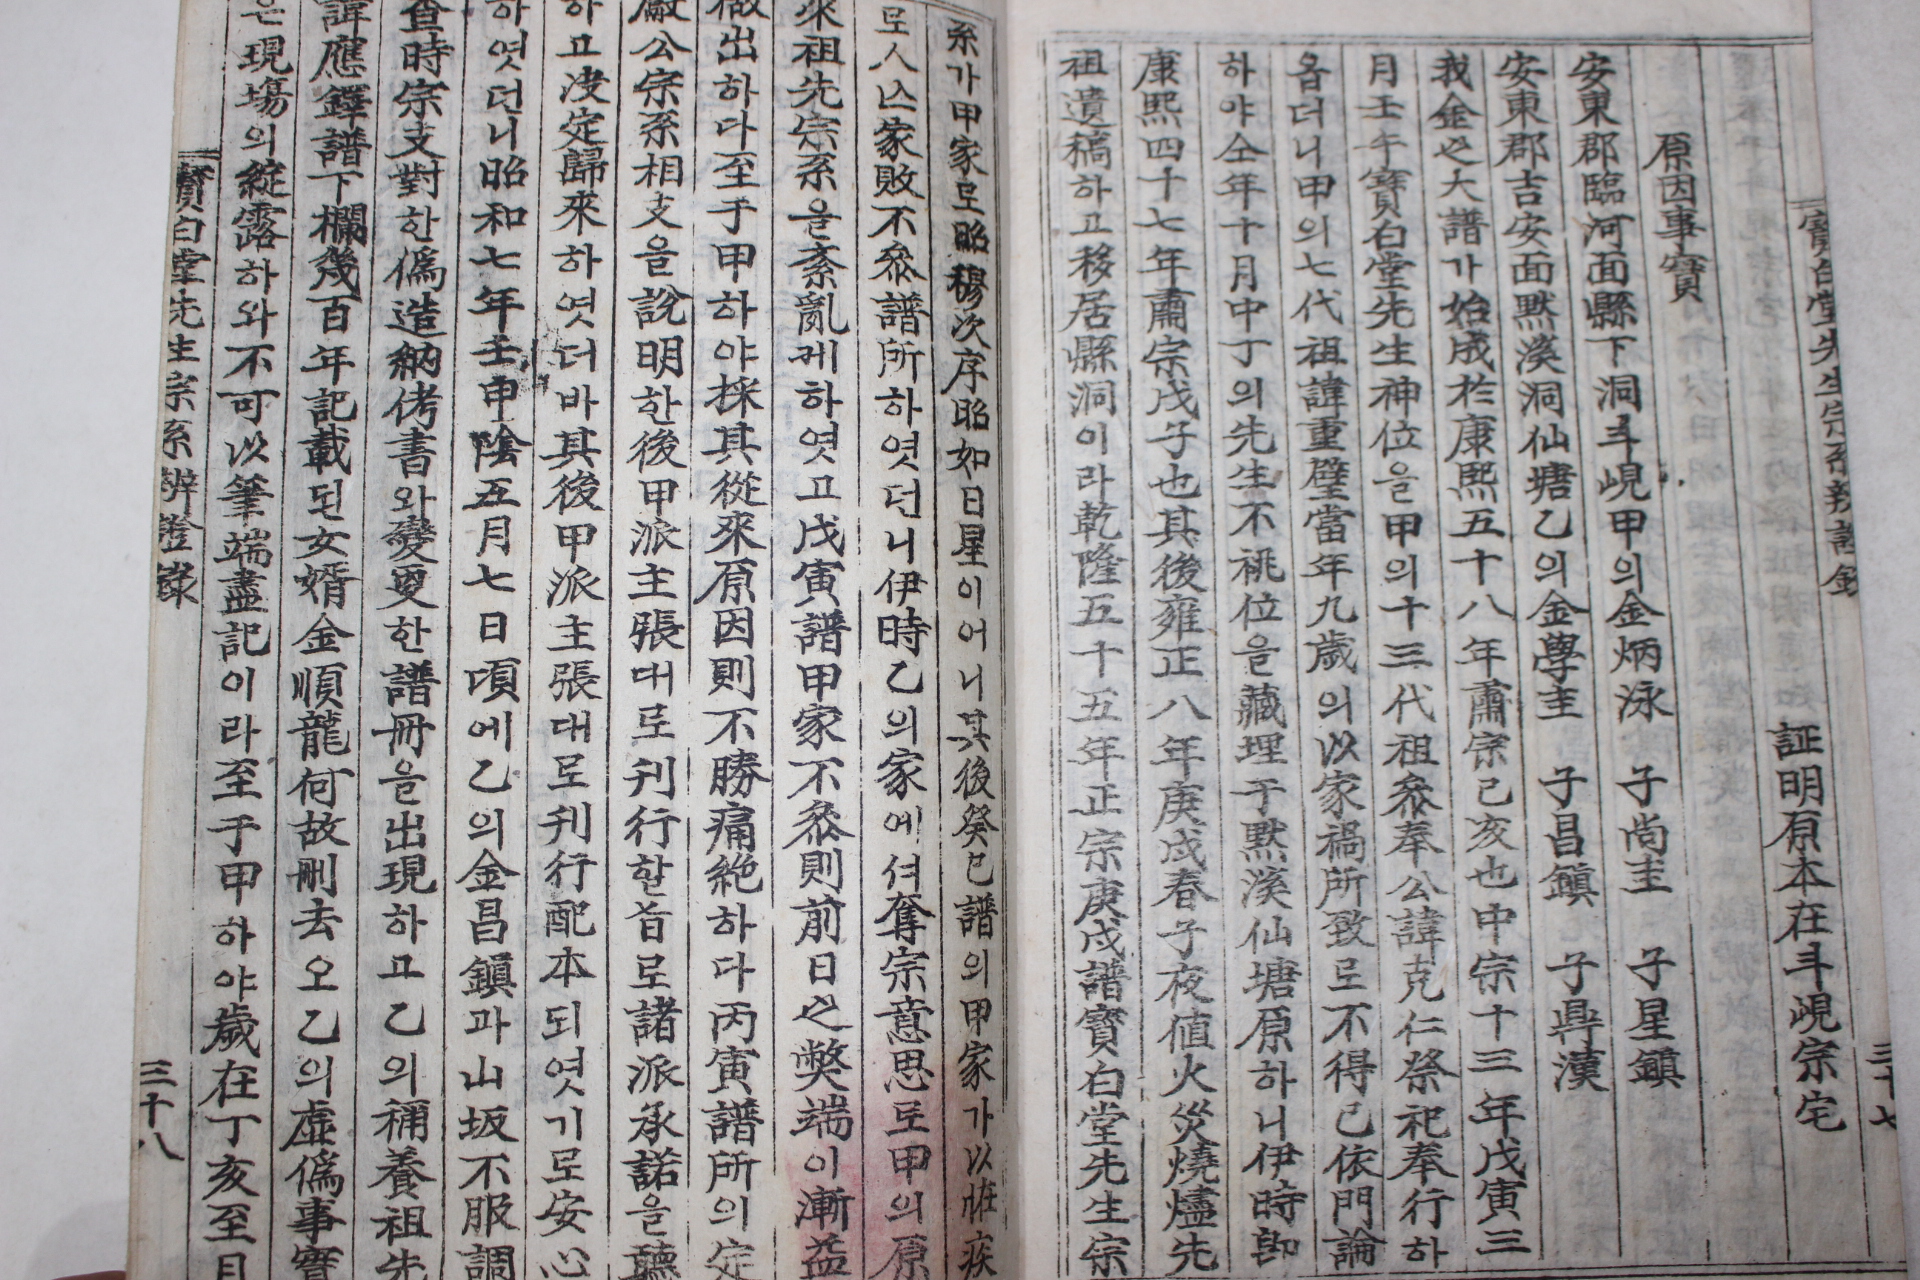 寶白堂先生宗系辨證錄
三十七
証明原本在斗峴宗宅
原因事實
安東郡臨河面縣下洞斗峴甲의金炳泳 子尙圭 子星鎭
安東郡吉安面默溪洞仙塘乙의金學圭 子昌鎭 子鼎漢
我金之大譜가始成於康熙五十八年肅宗己亥也中宗十三年戊寅三
月壬午寶白堂先生神位을甲의十三代祖叅奉公諱克仁祭祀奉行하
옵더니甲의七代祖諱重璧當年九歲의以家禍所致로不得已依門論
하야仝年十月中丁의先生不祧位을藏埋于默溪仙塘原하니伊時卽
康熙四十七年肅宗戊子也其後雍正八年庚戌春子夜値火災燒燼先
祖遺稿하고移居縣洞이라乾隆五十五年正宗庚戌譜寶白堂先生宗
系가甲家로昭穆次序昭如日星이어니其後癸巳譜의甲家가以㽵疾
로人亡家敗不叅譜所하엿더니伊時乙의家에셔奪宗意思로甲의原
來祖先宗系을紊亂케하엿고戊寅譜甲家不叅則前日之弊端이漸益
做出하다至于甲하야採其從來原因則不勝痛絶하다丙寅譜所의定
厰公宗系相支을說明한後甲派主張대로刊行할旨로諸派承諾을聽
하고決定歸來하엿더바其後甲派主張대로刊行配本되엿기로安心
하엿던니昭和七年壬申陰五月七日頃에乙의金昌鎭과山坂不服調
査時宗支對한僞造納侤書와變更한譜冊을出現하고乙의稱養祖先
諱應鐸譜下欄幾百年記載된女婿金順龍何故刪去오乙의虛僞事實
은現塲의綻露하와不可以筆端盡記이라至于甲하야歲在丁亥至月
寶白堂先生宗系辨證錄
三十八